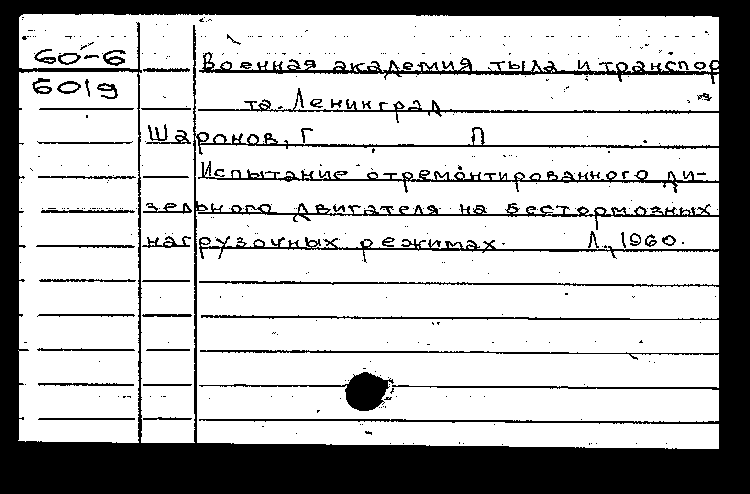 60-6
6019
Военная академия тыла и транспор
та. Ленинград
Шаронов, Г П
Испытание отремонтированного ди-
зельного двигателя на бестормозных
нагрузочных режимах. Л., 1960.